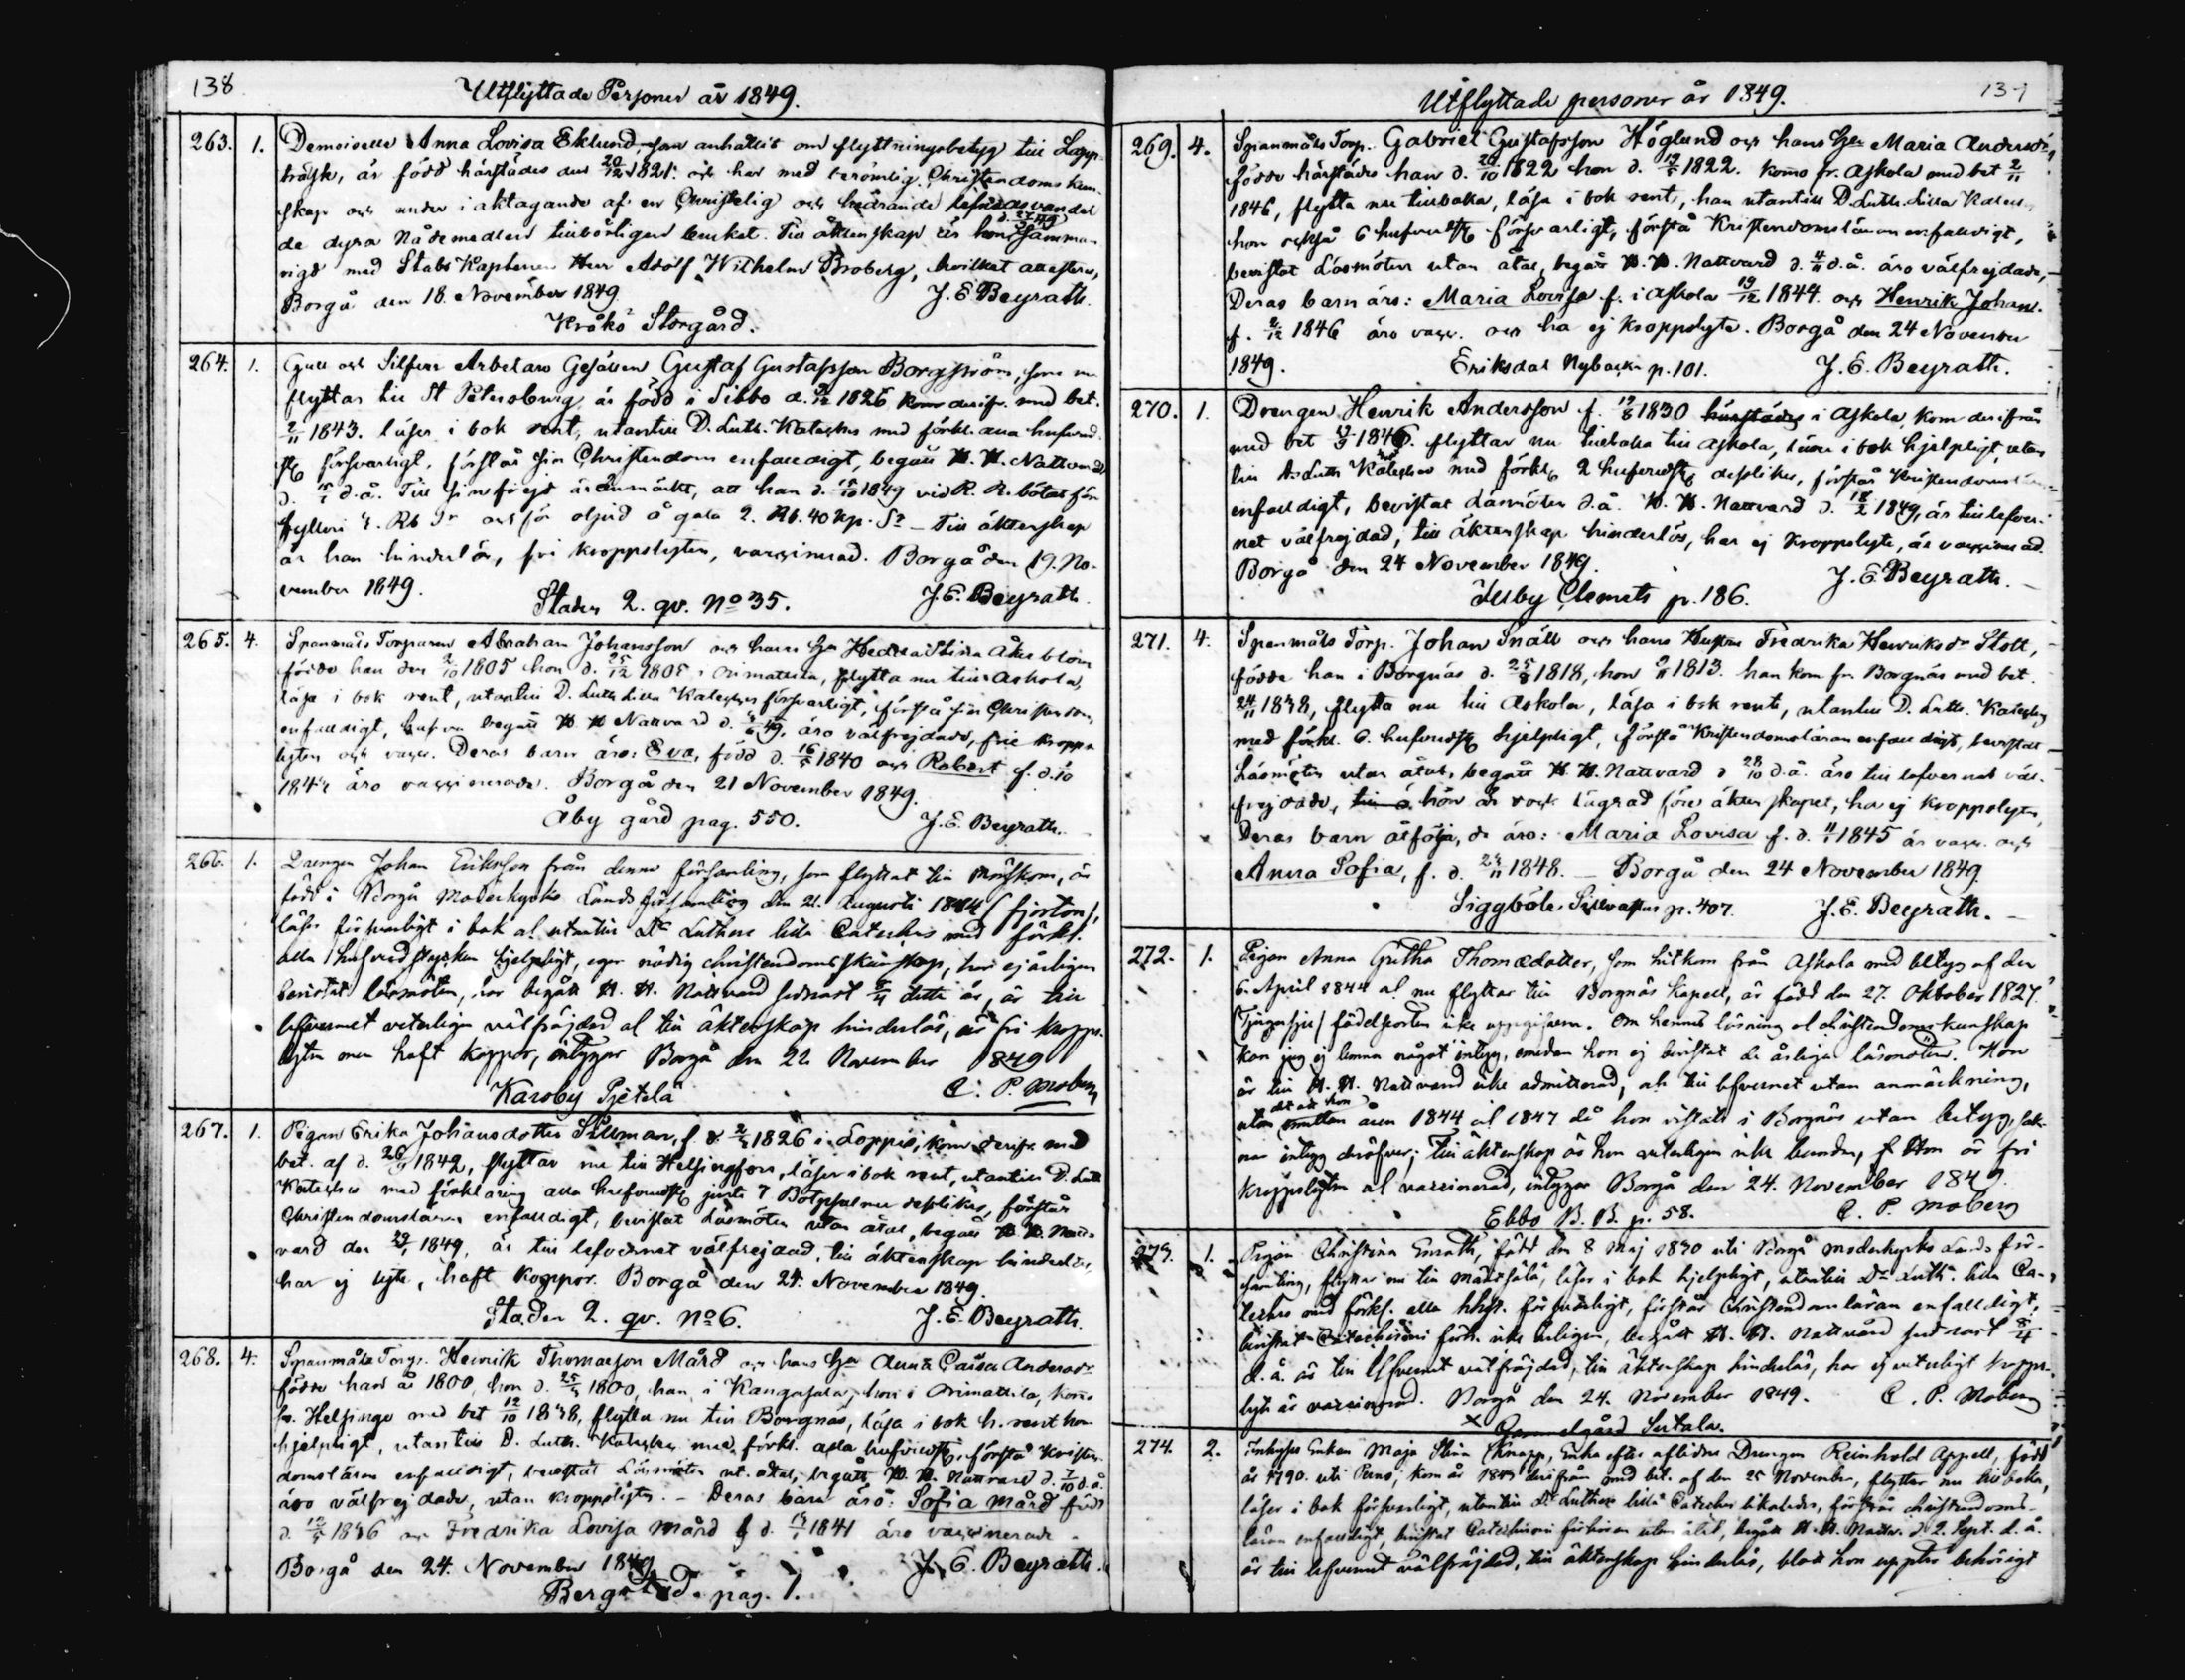 138
Utflyttade Personer år 1849.
263. 1. Demoiselle Anna Lovisa Eklund, som anhållit om flyttningsbetyg till Lapp-
träsk, är född härstädes den 20/12 1821: och har med berömlig Christendoms kun-
skap och under iaktagande af en Christelig och hedrande lefnadsvandel
de dyra Nådemedlen tillbörligen brukat. Till äktenskap är hon d. 27/ 49 samman-
vigd med Stabs Kaptenen Herr Adolf Wilhelm Broberg, hvilket attesteras,
Borgå den 18. November 1849. J. E. Beyrath.
Kråkö Storgård.
264. 1. Guld och Silfver Arbetare Gesällen Gustaf Gustafsson Borgström, som nu
flyttar till St Petersburg, är född i Sibbo d. 1826 kom derifr. med bet.
2/11 1843. läser i bok rent, utantill D. Luth. Kateches med förkl. alla hufvud-
st. försvarligt, förstår sin Christendom enfalldigt, begått H. H. Nattvard
d. d.å. Till sin frejd är anmärkt, att han d. 1849 vid R. R. bötat för
fylleri R Sr och för oljud å gata 2. Rb. 40 kp. Sr – Till äktenskap
är han hinderlös, fri kroppslyten, vaccinerad. Borgå den 19. No-
vember 1849. J. E. Beyrath.
Staden 2. qv. No 35.
265. 4. Spanmåls Torparen Abraham Johansson och hans H. Hedda Stina Åkerblom
födde han den 2/10 1805 hon d. 25/12 1805 i Orimattila, flytta nu till Askola,
läsa i bok rent, utantill D. Luth. Lilla Kateches försvarligt, förstå sin Christendom
enfalldigt, begått H. H. Nattvard d. 49, äro välfrejdade, frie kropps
lyten och vacc. Deras barn äro: Eva, född d. 16/5 1840 och Robert f. d.
184 äro vaccinerade. Borgå den 21 November 1849.
Åby gård pag. 550. J. E. Beyrath.
266. 1. Drengen Johan Eriksson från denna församling, som flyttat till Mörskom, är
född i Borgå Moderkyrko Landsförsamling den 21. Augusti 1814 (fjorton),
läser försvarligt i bok al utantill Dr Luthers lilla Cateches med förkl.
alla hufvudstycken hjelpligt, eger nödig christendomskunskap, har ej årligen
bevistat läsmöten, har begått H. H. Nattvard sednast detta år, är till
lefvernet veterligen välfräjdad al till äktenskap hinderlös, är fri kropps-
lyten men haft koppor, intygar Borgå den 22 November 1849
Karsby Pjetilä C. P. Moberg
267. 1. Pigan Erika Johansdotter Sillman, f. d. 1826 i Loppis, kom derifr. med
bet. af d. 26/ 1842, flyttar nu till Helsingfors, läser i bok rent, utantill D. Luth
Kateches med förklaring alla hufvudst. jemte 7 Botpsalmer desslikes, förstår
Christendomsläran enfalldigt, bevistat Läsmöten utan åtal, begått H. H. Natt-
vard den 1849, är till lefvernet välfrejdad, till äktenskap hinderlös,
har ej lyte, haft koppor. Borgå den 24. November 1849.
Staden 2. qv. No 6. J. E. Beyrath.
268. 4. Spanmåls Torp. Henrik Thomasson Mård och hans H. Anna Caisa Andersdr
födde han år 1800, hon d. 25/ 1800, han i Kangasala, hon i Orimattila, komo
fr. Helsinge med bet 12/10 1838, flytta nu till Borgnäs, läsa i bok h. rent hon
hjelpligt, utantill D. Luth. Kateches med förkl. alla hufvudst., förstå Kristen-
domsläran enfalldigt, bevistat Läsmöten ut. åtal, begått H. H. Nattvard d. 7/10 d.å.
äro välfrejdade, utan kroppslyten. – Deras barn äro: Sofia Mård född
d. 1836 och Fredrika Lovisa Mård f. d. 1841 äro vaccinerade.
Borgå den 24. November 1849 J. E. Beyrath.
Bergstad pag. 1.
Utflyttade personer år 1849.
139
269. 4. Spanmåls Torp. Gabriel Gustafsson Höglund och hans H. Maria Andersdr,
födde härstädes han d. 20/10 1822 hon d. 19/5 1822. komo fr. Askola med bet 2/11
1846, flytta nu tillbaka, läsa i bok rent, han utantill D. Luth. Lilla Kateches
hon också 6 hufvudst. försvarligt, förstå Kristendomsläran enfalldigt,
bevistat Läsmöten utan åtal, begått H. H. Nattvard d. 4/ d.å. äro välfrejdade,
Deras barn äro: Maria Lovisa f. i Askola 19/12 1844 och Henrik Johan.
f. 1846 äro vacc. och ha ej kroppslyte. Borgå den 24 November
1849. Eriksdal Nybacka p. 101. J. E. Beyrath.
270. 1. Drengen Henrik Andersson f. 19/8 1830 härstädes i Askola, kom derifrån
med bet 1846. flyttar nu tillbaka till Askola, läser i bok hjelpligt, utan
till D. Luth Kateches med förkl, 2 hufvudst. desslikes, förstår Kristendomsläran
enfalldigt, bevistat Läsmöten d.å. H. H. Nattvard d. 18/2 1849, är till lefver-
net välfrejdad, till äktenskap hinderlös, har ej kroppslyte, är vaccinerad.
Borgå den 24 November 1849. J. E. Beyrath.
Illby Clemets p. 186.
271. 4. Spanmåls Torp. Johan Snäll och hans Hustru Fredrika Henriksdr Stolt,
födde han i Borgnäs d. 25/8 1818, hon 1813. han kom fr. Borgnäs med bet.
24/11 1838, flytta nu till Askola, läsa i bok rent, utantill D. Luth. Kateches
med förkl. 6. hufvudst. hjelpligt, förstå Kristendomsläran enfalldigt, bevistat
Läsmöten utan åtal, begått H. H. Nattvard d 28/10 d.å. äro till lefvernet väl-
frejdade, hon är dock lägrad före äktenskapet, ha ej kroppslyten,
Deras barn åtfölja, de äro: Maria Lovisa f. d. 1845 är vacc. och
Anna Sofia, f. d. 1848. – Borgå den 24 November 1849.
Siggböle Sillvastus p. 407. J. E. Beyrath.
272. 1. Pigan Anna Gretha Thomædotter, som hitkom från Askola med betyg af den
6. April 1844 al nu flyttar till Borgnäs Kapell, är född den 27. Oktober 1827.
(Tjugusju) födelseorten icke uppgifven. Om hennes läsning al christendomskunskap
kan jag ej lemna något intyg, emedan hon ej bevistat de årliga läsmöten. Hon
är till H. H. Nattvard icke admitterad, och till lefvernet utan anmärkning,
utom det att hon emellan åren 1844 al 1847 då hon vistats i Borgnäs utan betyg, sak-
nar intyg deröfver; till äktenskap är hon veterligen icke bunden, Hon är fri
kroppslyten al vaccinerad, intygar Borgå den 24. November 1849.
Ebbo B. B. p. 58. C. P. Moberg
273. 1. Pigan Christina Enroth, född den 8 Maj 1830 uti Borgå moderkyrko Lands för-
samling, flyttar nu till Mäntsälä, läser i bok hjelpligt, utantill Dr Luth. lilla Ca-
teches med förkl. alla hhst. försvarligt, förstår Christendomsläran enfalldigt,
bevistat Catechismi förh. icke årligen, begått H. H. Nattvard sednast
d.å. är till lefvernet välfräjdad, till äktenskap hinderlös, har ej veterligt kropps-
lyte är vaccinerad. Borgå den 24. November 1849. C. P. Moberg
x Gammelgård Suntala.
274. 2. Inhyses Enkan Maja Stina Knapp, Enka efter aflidne Drengen Reinhold Appell, född
år 1790. uti Perno, kom år 1843 derifrån med bet. af den 25 November, flyttar nu tillbaka,
läser i bok försvarligt, utantill Dr Luthers lilla Cateches likaledes, förstår christendoms-
läran enfalldigt, bevistat Catechismi förhören utan åtal, begått H. H. Nattv. d. 2. Sept. d. å.
är till lefvernet välfräjdad, till äktenskap hinderlös, blott hon uppter behörigt